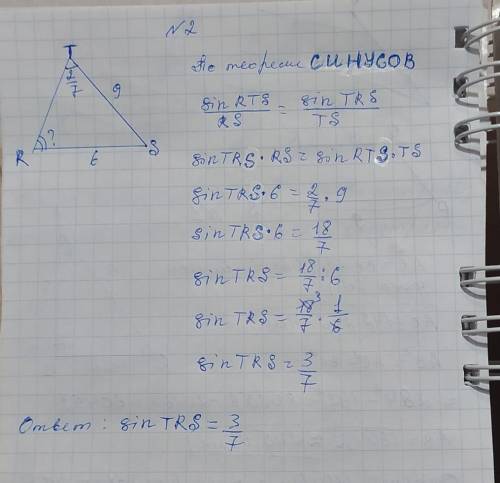 №2
T
2/7
9
R
?
6
S
По теореме СИНУСОВ
sin RTS / RS = sin TRS / TS
sin TRS · RS = sin RTS · TS
sin TRS · 6 = 2/7 · 9
sin TRS · 6 = 18/7
sin TRS = 18/7 : 6
sin TRS = 18³/7 · 1/6
sin TRS = 3/7
Ответ: sin TRS = 3/7